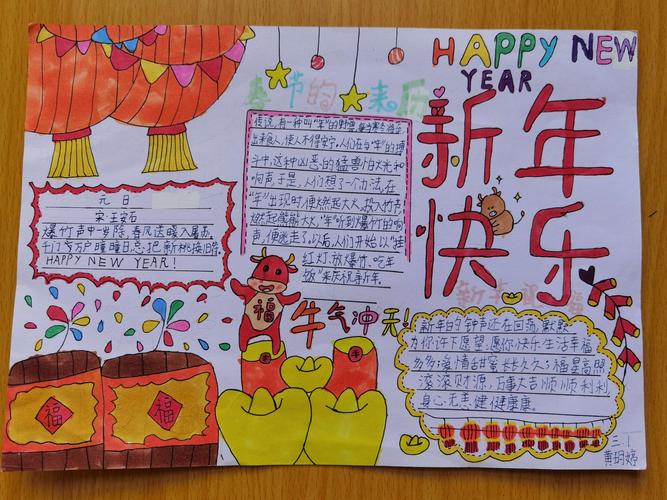 HAPPY NEW
YEAR
新年
快乐
春节的来历
传说,有一种叫"年"的野兽,每当寒冬将尽
出来食人,使人不得安宁。人们在与"年"的搏
斗中,这种凶恶的猛兽怕火光和
响声,于是,人们想了一个办法,在
"年"出现时,便燃起大火,投入竹节,
燃起熊熊大火,"年"听到爆竹的响
声,便逃走了。以后,人们开始以"挂
红灯、放爆竹、吃年
饭"来庆祝新年。
元日
宋·王安石
爆竹声中一岁除,春风送暖入屠苏,
千门万户瞳瞳日,总把新桃换旧符。
HAPPY NEW YEAR!
福
牛气冲天!
福
福
新年祝福
新年的钟声还在回荡,默默
为你许下愿望,愿你快乐生活幸福
多多,爱情甜蜜长长久久,福星高照
滚滚财源,万事大吉顺顺利利
身心无恙健健康康。
三.1
黄玥婷